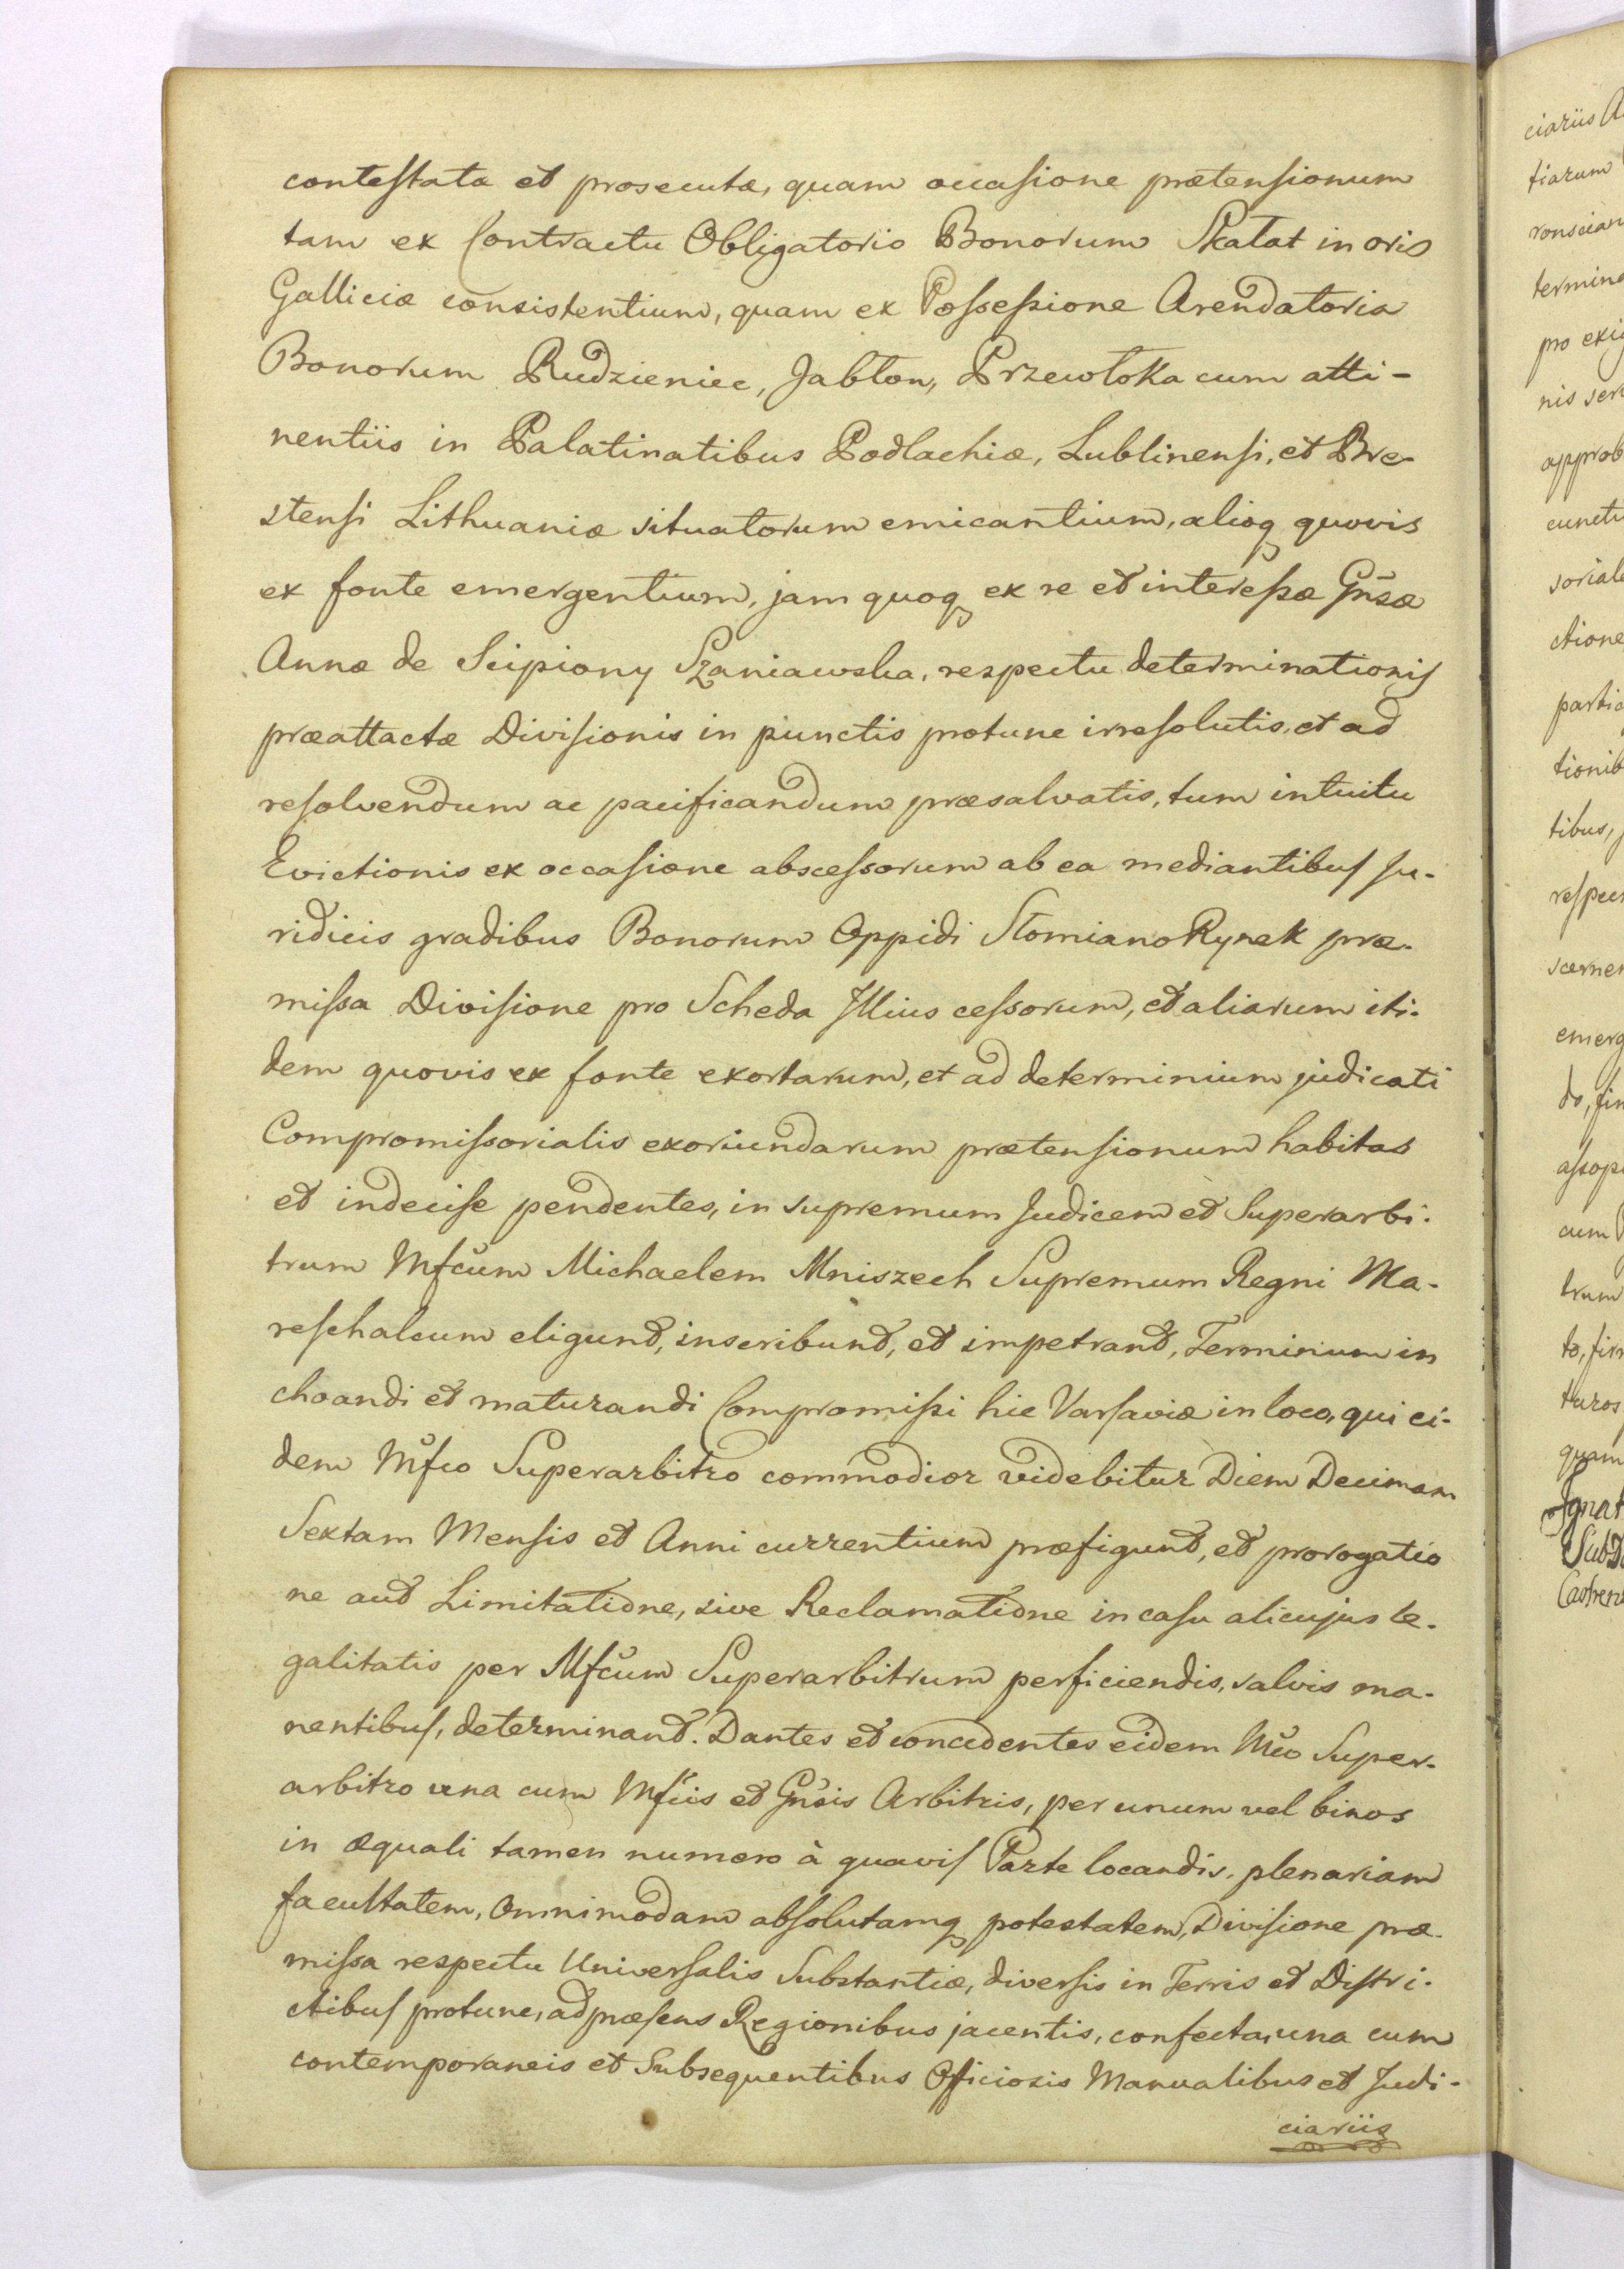 contestata et prosecuta, quam occasione prætensionum
tam ex Contractu Obligatorio Bonorum Skałat in oris
Galliciæ consistentium, quam ex Possessione Arendatoria
Bonorum Rudzieniec, Jabłon, Przewłoka cum atti-
nentiis in Palatinatibus Podlachiæ, Lublinensi, et Bre-
stensi Lithuaniæ situatorum emicantium, alioq quovis
ex fonte emergentium, jam quoq ex re et interesse Gñsæ
Annæ de Scipiony Szaniawska, respectu determinationis
præattactæ Divisionis in punctis protunc irresolutis, et ad
resolvendum ac pacificandum præsalvatis, tum intuitu
Evictionis ex occasione abscessorum ab ea mediantibus Ju-
ridicis gradibus Bonorum Oppidi Słomiano Rynek præ-
missa Divisione pro Scheda Illius cessorum, et aliarum iti-
dem quovis ex fonte exortarum, et ad determinium judicati
Compromissorialis exoriundarum prætensionum habitas
et indecise pendentes, in supremum Judicem et Superarbi-
trum Mfcum Michaelem Mniszech Supremum Regni Ma-
reschalcum eligunt, inscribunt, et impetrant, Terminum in
choandi et maturandi Compromissi hic Varsaviæ in loco, qui ei-
dem Mfco Superarbitro commodior videbitur Diem Decimam
Sextam Mensis et Anni currentium præfigunt, et prorogatio
ne aut Limitatione, sive Reclamatione in casu alicujus le-
galitatis per Mfcum Superarbitrum perficiendis, salvis ma-
nentibus, determinant. Dantes et concedentes eidem Mco Super-
arbitro una cum Mfcis et Gñsis Arbitris, per unum vel binos
in æquali tamen numero à quavis Parte locandis, plenariam
facultatem, omnimodam absolutamq potestatem, Divisione præ-
missa respectu Universalis Substantiæ, diversis in Terris et Distri-
ctibus protunc, ad præsens Regionibus jacentis, confecta, una cum
contemporaneis et Subsequentibus Officiosis Manualibus et Judi-
ciariis
ciariis
tiarum
termine
nis
approb
cunct
soriale
ctione
tionib
tibus,
emerg
cum
trum
turos
quam
Ignat